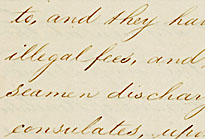 to, and they hav
illegal fees, and,
seamen dischar
consulates, upo